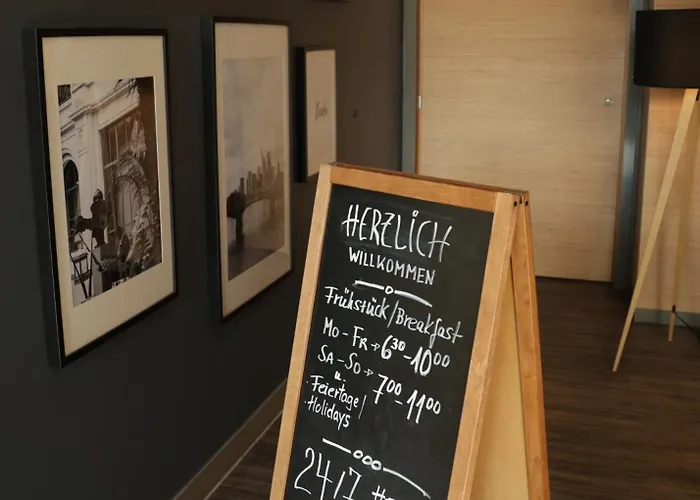 HERZLICH
WILLKOMMEN
Frühstück/Breakfast
Mo-Fr → 6³⁰-10⁰⁰
Sa-So → 7⁰⁰-11⁰⁰
u.
Feiertage/
Holidays
24/7